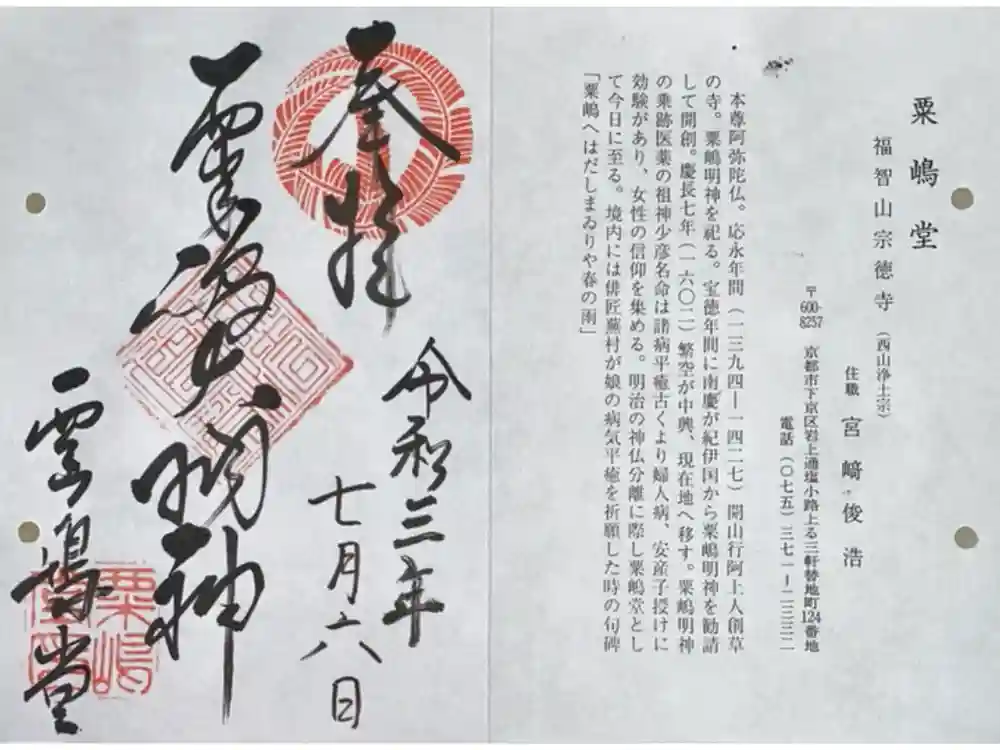 粟嶋堂
福智山宗徳寺（西山浄土宗）
住職 宮﨑俊浩
〒600-8257 京都市下京区岩上通塩小路上る三軒替地町124番地
電話（〇七五）三七一ー二三三二
本尊阿弥陀仏。応永年間（一三九四ー一四二七）開山行阿上人創草
の寺。粟嶋明神を祀る。宝徳年間に南慶が紀伊国から粟嶋明神を勧請
して開創。慶長七年（一六〇二）繁空が中興、現在地へ移す。粟嶋明神
の乗跡医薬の祖神少彦名命は諸病平癒古くより婦人病、安産子授けに
効験があり、女性の信仰を集める。明治の神仏分離に際し粟嶋堂とし
て今日に至る。境内には俳匠蕪村が娘の病気平癒を祈願した時の句碑
「粟嶋へはだしまゐりや春の雨」
奉拝
令和三年
七月六日
粟嶋大明神
粟嶋堂
粟嶋